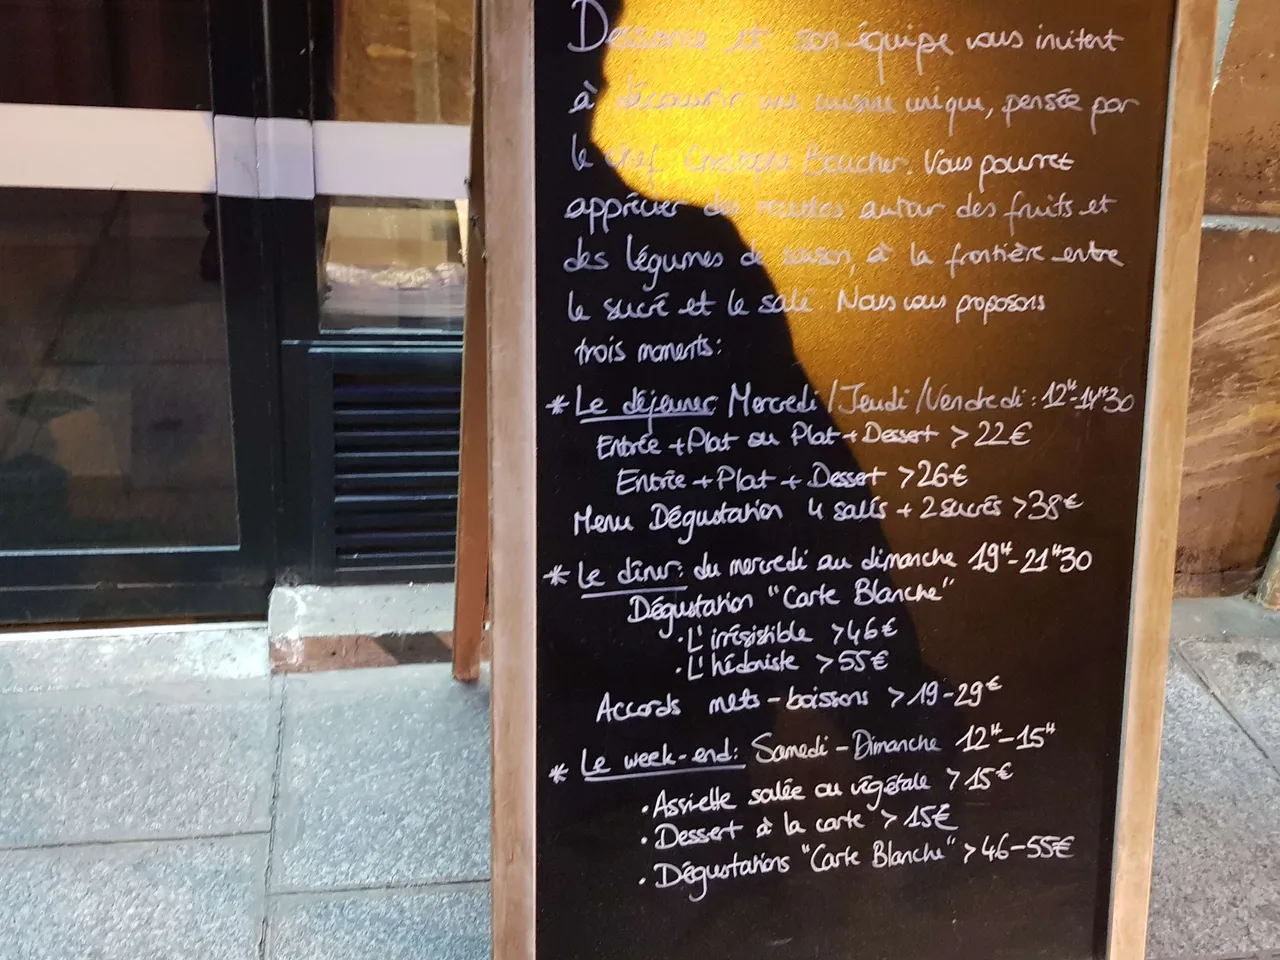 Dessance et son équipe vous invitent
à découvrir une cuisine unique, pensée par
le chef Christophe Boucher. Vous pourrez
apprécier des recettes autour des fruits et
des légumes de saison, à la frontière entre
le sucré et le salé. Nous vous proposons
trois moments:
* Le déjeuner: Mercredi/Jeudi/Vendredi: 12H-14H30
Entrée + Plat ou Plat + Dessert > 22€
Entrée + Plat + Dessert > 26€
Menu Dégustation 4 salés + 2 sucrés > 38€
* Le dîner: du mercredi au dimanche 19H-21H30
Dégustation "Carte Blanche"
· L'irrésistible > 46€
· L'hédoniste > 55€
Accords mets-boissons > 19-29€
* Le week-end: Samedi - Dimanche 12H-15H
· Assiette salée ou végétale > 15€
· Dessert à la carte > 15€
· Dégustations "Carte Blanche" > 46-55€